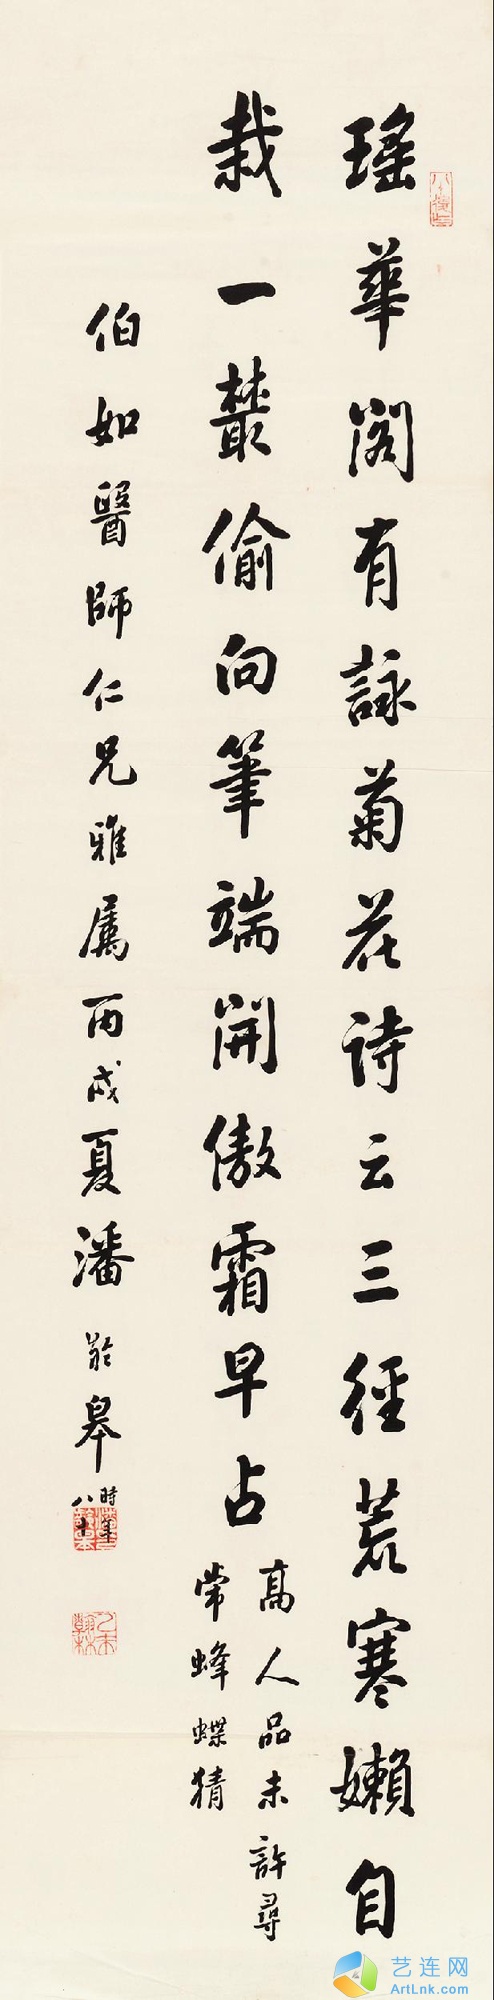 瑤華閣有詠菊花诗云三徑荒寒嬾自
栽一叢偷向筆端開傲霜早占
高人品未許尋
常蜂蝶猜
伯如醫師仁兄雅屬丙戌夏潘齡皋時年
八十
乙未
翰林
艺连网
ArtLnk.com